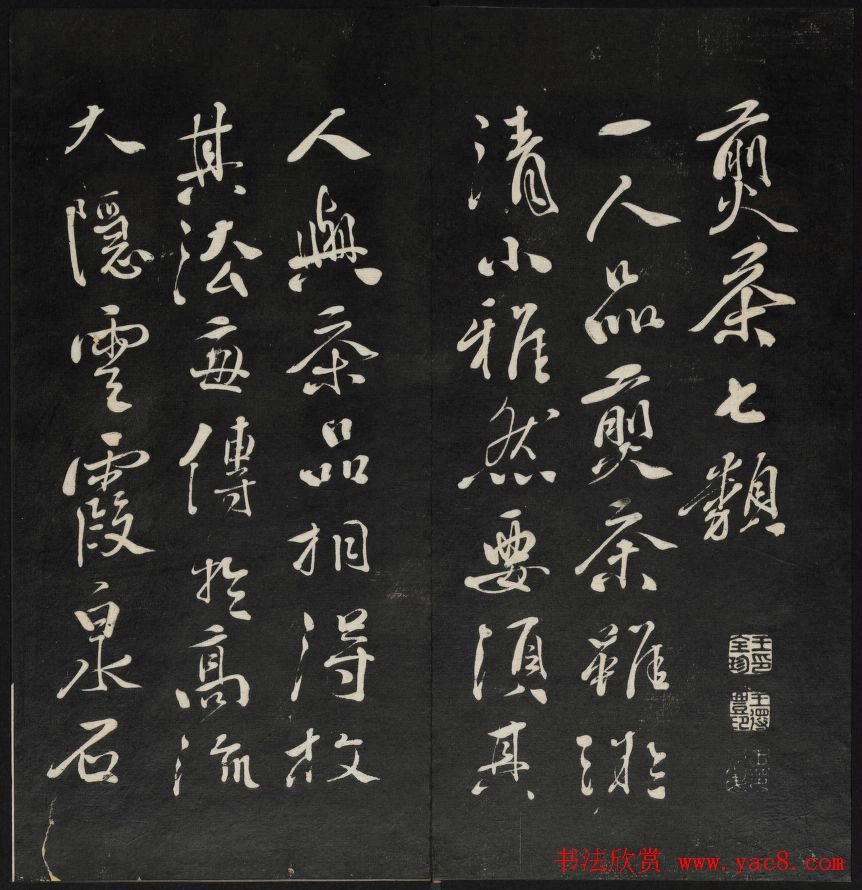 煎茶七類
一人品煎茶雖微
清小雅然要須其
人與茶品相得故
其法每傳於高流
大隱雲霞泉石
书法欣赏 www.yac8.com